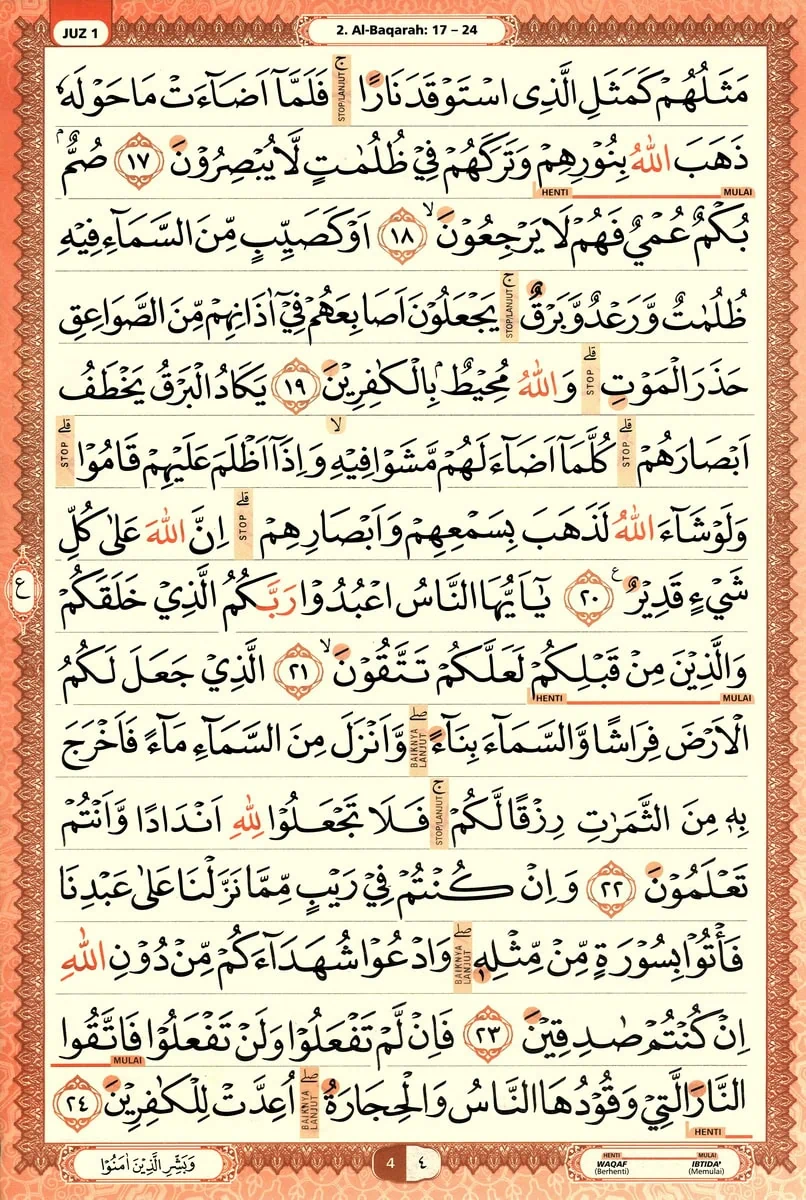 JUZ 1
2. Al-Baqarah: 17 – 24
مَثَلُهُمْ كَمَثَلِ الَّذِى اسْتَوْقَدَ نَارًا ۚ STOP/LANJUT فَلَمَّآ اَضَاۤءَتْ مَا حَوْلَهٗ
ذَهَبَ اللّٰهُ بِنُوْرِهِمْ وَتَرَكَهُمْ فِيْ ظُلُمٰتٍ لَّا يُبْصِرُوْنَ ١٧ صُمٌّ ۢ
HENTI MULAI
بُكْمٌ عُمْيٌ فَهُمْ لَا يَرْجِعُوْنَۙ ١٨ اَوْ كَصَيِّبٍ مِّنَ السَّمَاۤءِ فِيْهِ
ظُلُمٰتٌ وَّرَعْدٌ وَّبَرْقٌ ۚ STOP/LANJUT يَجْعَلُوْنَ اَصَابِعَهُمْ فِيْٓ اٰذَانِهِمْ مِّنَ الصَّوَاعِقِ
حَذَرَ الْمَوْتِ ۗ STOP وَاللّٰهُ مُحِيْطٌۢ بِالْكٰفِرِيْنَ ١٩ يَكَادُ الْبَرْقُ يَخْطَفُ
اَبْصَارَهُمْ ۗ STOP كُلَّمَآ اَضَاۤءَ لَهُمْ مَّشَوْا فِيْهِۙ وَاِذَآ اَظْلَمَ عَلَيْهِمْ قَامُوْا ۗ STOP
وَلَوْ شَاۤءَ اللّٰهُ لَذَهَبَ بِسَمْعِهِمْ وَاَبْصَارِهِمْ ۗ STOP اِنَّ اللّٰهَ عَلٰى كُلِّ
شَيْءٍ قَدِيْرٌ ࣖ ٢٠ يٰٓاَيُّهَا النَّاسُ اعْبُدُوْا رَبَّكُمُ الَّذِيْ خَلَقَكُمْ
ع
وَالَّذِيْنَ مِنْ قَبْلِكُمْ لَعَلَّكُمْ تَتَّقُوْنَۙ ٢١ الَّذِيْ جَعَلَ لَكُمُ
HENTI MULAI
الْاَرْضَ فِرَاشًا وَّالسَّمَاۤءَ بِنَاۤءً ۖ BAIKNYA LANJUT وَّاَنْزَلَ مِنَ السَّمَاۤءِ مَاۤءً فَاَخْرَجَ
بِهٖ مِنَ الثَّمَرٰتِ رِزْقًا لَّكُمْ ۚ STOP/LANJUT فَلَا تَجْعَلُوْا لِلّٰهِ اَنْدَادًا وَّاَنْتُمْ
تَعْلَمُوْنَ ٢٢ وَاِنْ كُنْتُمْ فِيْ رَيْبٍ مِّمَّا نَزَّلْنَا عَلٰى عَبْدِنَا
فَأْتُوْا بِسُوْرَةٍ مِّنْ مِّثْلِهٖ ۖ BAIKNYA LANJUT وَادْعُوْا شُهَدَاۤءَكُمْ مِّنْ دُوْنِ اللّٰهِ
اِنْ كُنْتُمْ صٰدِقِيْنَ ٢٣ فَاِنْ لَّمْ تَفْعَلُوْا وَلَنْ تَفْعَلُوْا فَاتَّقُوا
MULAI
النَّارَ الَّتِيْ وَقُوْدُهَا النَّاسُ وَالْحِجَارَةُ ۖ BAIKNYA LANJUT اُعِدَّتْ لِلْكٰفِرِيْنَ ٢٤
HENTI
وَبَشِّرِ الَّذِيْنَ اٰمَنُوْا
4 ٤
HENTI MULAI
WAQAF IBTIDA'
(Berhenti) (Memulai)